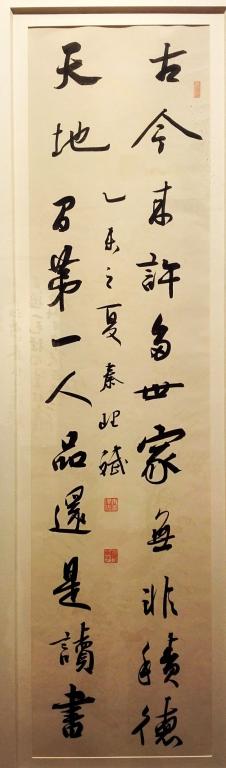 古今來許多世家無非積德
天地間第一人品還是讀書
乙未之夏秦